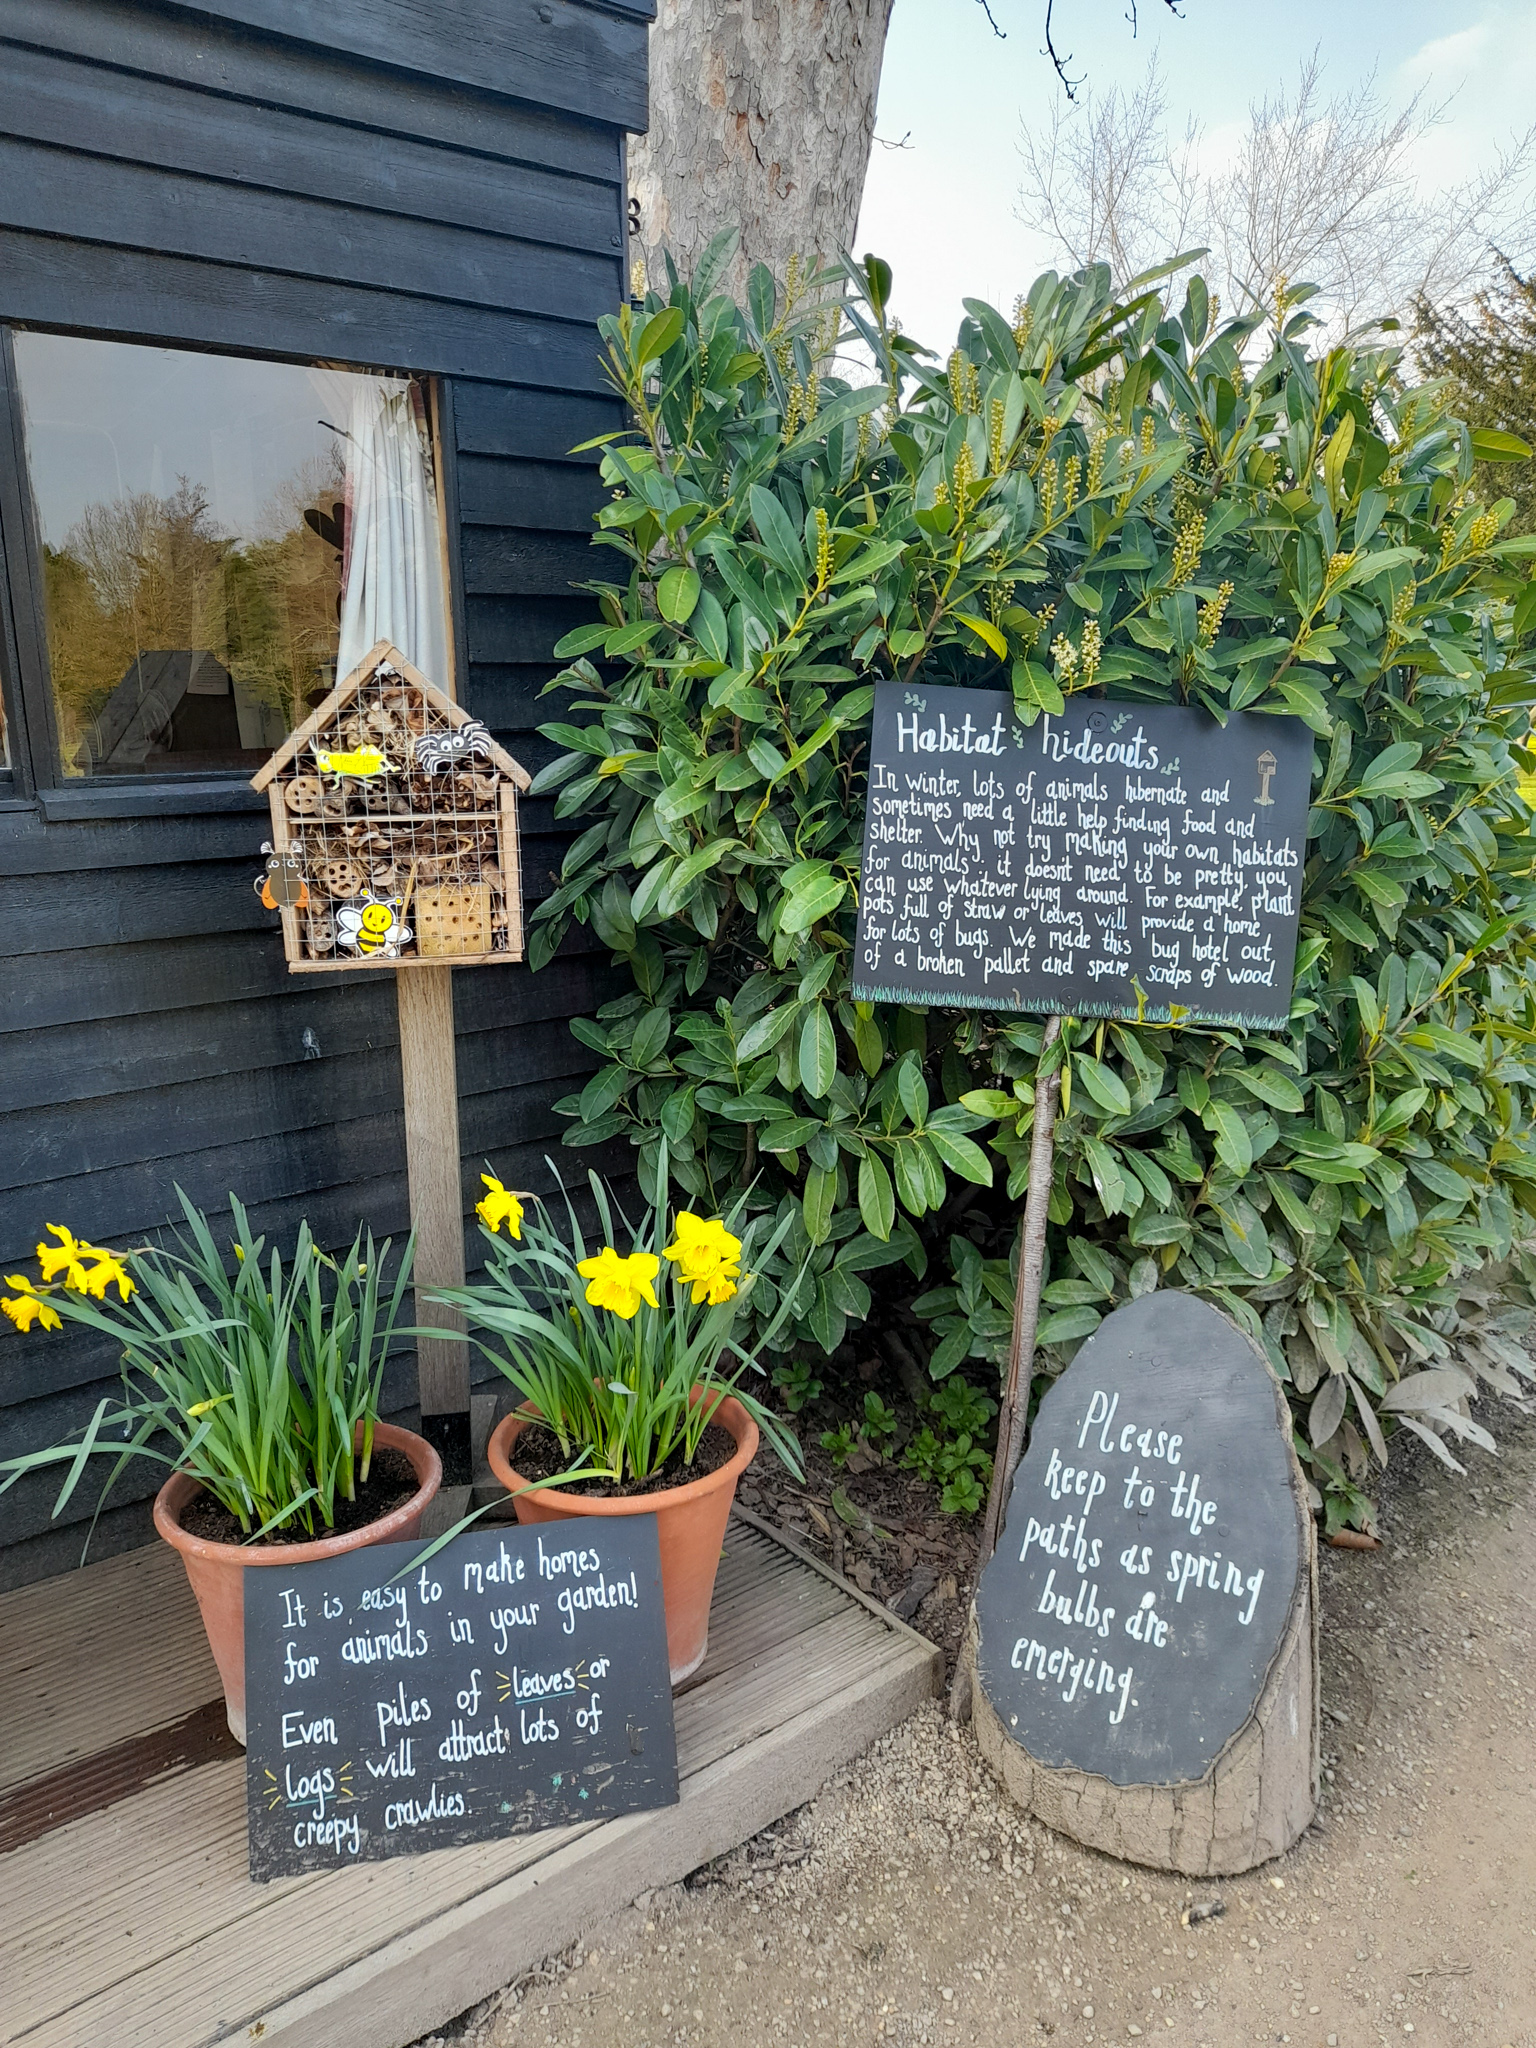 Habitat hideouts
In winter, lots of animals hibernate and
sometimes need a little help finding food and
shelter. Why not try making your own habitats
for animals. it doesn't need to be pretty, you
can use whatever lying around. For example, plant
pots full of straw or leaves will provide a home
for lots of bugs. We made this bug hotel out
of a broken pallet and spare scraps of wood.
Please
keep to the
paths as spring
bulbs are
emerging.
It is easy to make homes
for animals in your garden!
Even piles of leaves or
logs will attract lots of
creepy crawlies.